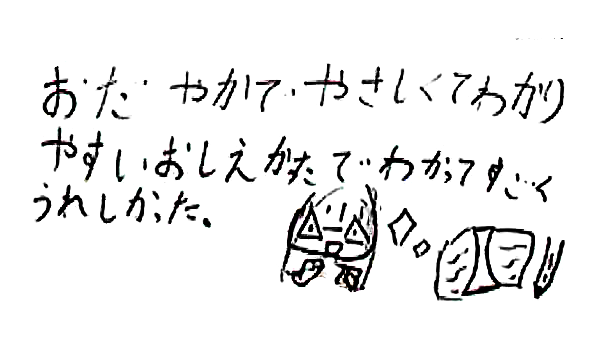 おだやかで やさしくてわかり
やすいおしえかたでわかってすごく
うれしかった。